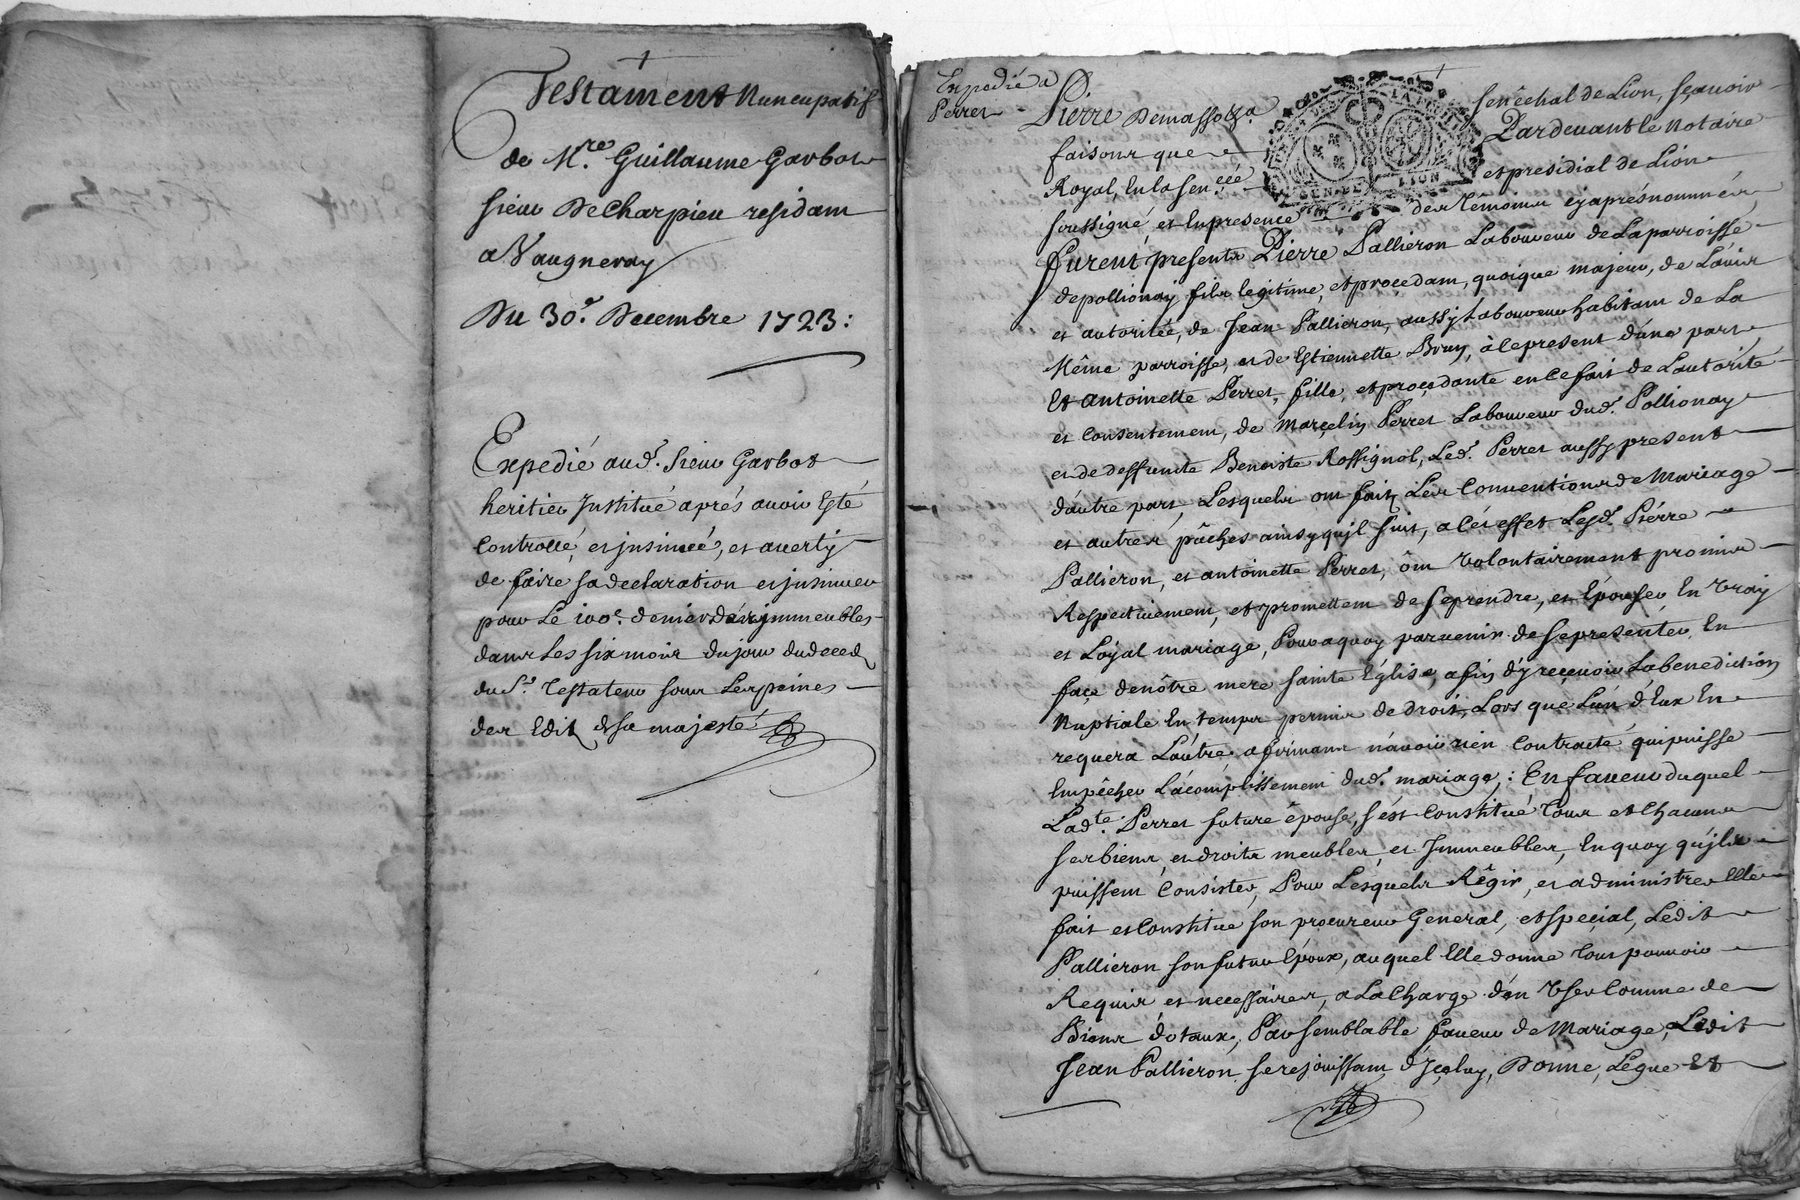 Testament Nuncupatif
de Mre. Guillaume Garbot
sieur De Charpieu residant
a Vaugneray
Du 30e. Decembre 1723:
Expedié aud. sieur Garbot
heritier Institué aprés avoir Esté
Controllé, et insinué, et averty
de faire sa declaration et insinuer
pour Le 100e. denier des immeubles
dans Les six mois du jour du deced
du Sr. Testateur sous Les peines
des Edit de sa majesté
Expedié a
Perret
Pierre Demasso &a
senêchal de Lion, sçavoir
faisons que
Pardevant le Notaire
Royal, En la sencée
et presidial de Lion
GEN DE LION
soussigné, et En presence des têmoins cy aprés nommés,
furent presents Pierre Pallieron Laboureur de La parroisse
de pollionay fils legitime, et procedant, quoique majeur, de L'avis
et autoritée, de Jean Pallieron, aussy Laboureur habitant de La
Même parroisse, et de Estiennette Brun, à le present d'une part
Et antoinette Perret, fille, et procedante en Ce fait de L'autorité
et Consentement, de Marcelin Perret Laboureur dud. Pollionay
et de deffunte Benoiste Rossignol, Led. Perret aussy present
d'autre part, Lesquels ont fait, Les Conventions de Mariage
et autres pâches ainsy qu'il suit, a Cét effet Lesd. Piérre
Pallieron, et antoinette Perret, ônt Volontairement promis
Respectivement, et promettent de se prendre, et Epouser En Vray
et Loyal mariage, Pour a quoy parvenir de se presenter En
façe de nôtre mere sainte Église, afin d'y recevoir La benediction
Nuptiale En temps permis de droit, Lors que L'un d'Eux En
requera L'autre, afirmant n'avoir rien Contracté qui puisse
Empêcher L'acomplissement dud. mariage; En faveur duquel
Ladte. Perret future êpouse, s'ést Constitué Tous et Chacuns
ses biens, et droits meubles, et Immeubles, En quoy qu'ils
puissent Consister, Pour Lesquels Régir, et administrer Elle
fait et Constitué son procureur General, et special, Ledit
Pallieron son futur Epoux, auquel Elle donne Tous pouvoir
Requis et necessaires, a La Charge d'en Vser Comme de
Biens dotaux, Par semblable faveur de Mariage, Ledit
Jean Pallieron se rejouissant d'jçeluy, Donne, Legue Et